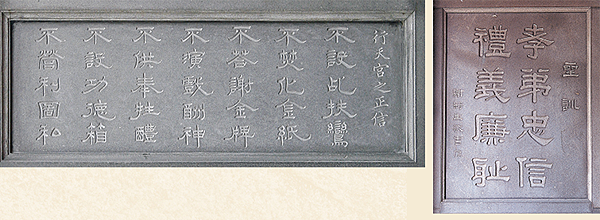 行天宮之正信
不設乩扶鸞
不焚化金紙
不答謝金牌
不演戲酬神
不供奉牲醴
不設功德箱
不營利圖私
聖訓
孝弟忠信
禮義廉耻